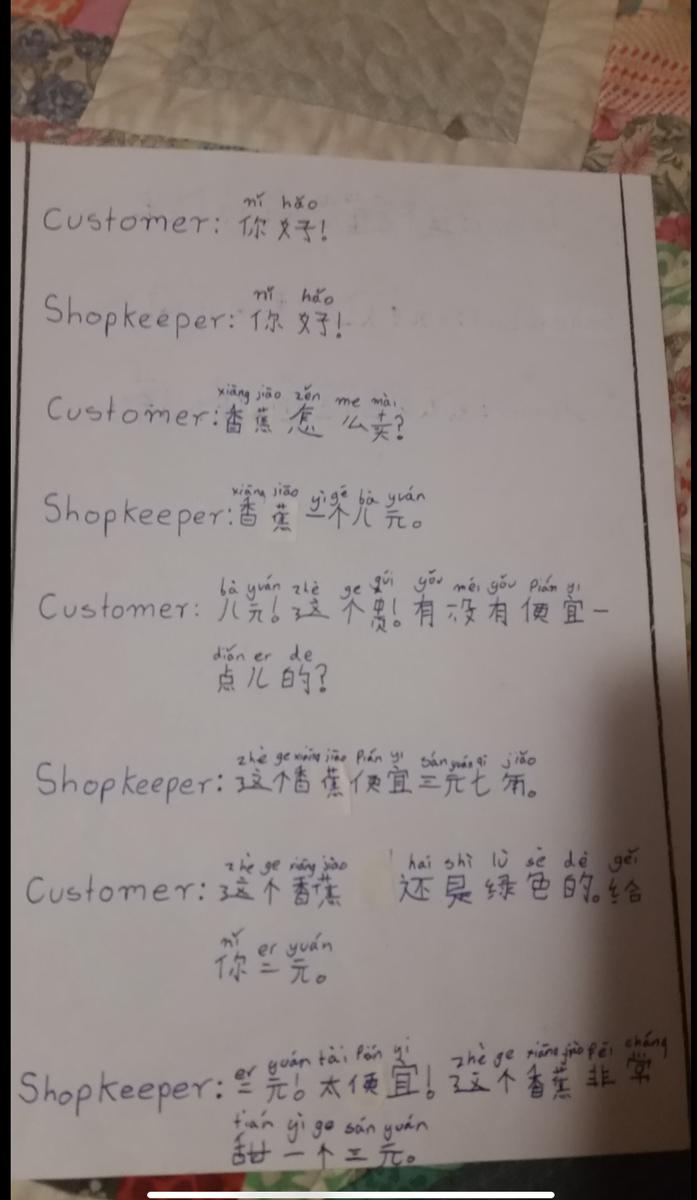 nǐ hǎo
Customer: 你好!
nǐ hǎo
Shopkeeper: 你好!
xiāng jiāo zěn me mài
Customer: 香蕉怎么卖?
xiāng jiāo yì gé bà yuán
Shopkeeper: 香蕉一个八元。
bà yuán zhè ge gùi yǒu méi yǒu Pián yi
Customer: 八元! 这个贵! 有没有便宜一
diǎn er de
点儿的?
zhè ge xiāng jiāo Pián yi sán yuán qi jiǎo
Shopkeeper: 这个香蕉便宜三元七角。
zhè ge xiāng jiào hai shì lǜ sè dè gěi
Customer: 这个香蕉 还是绿色的。给
nǐ er yuán
你二元。
er yuán tài Pán yi zhè ge xiāng jiāo fēi cháng
Shopkeeper: 二元! 太便宜! 这个香蕉非常
tián yì ge sán yuán
甜一个三元。